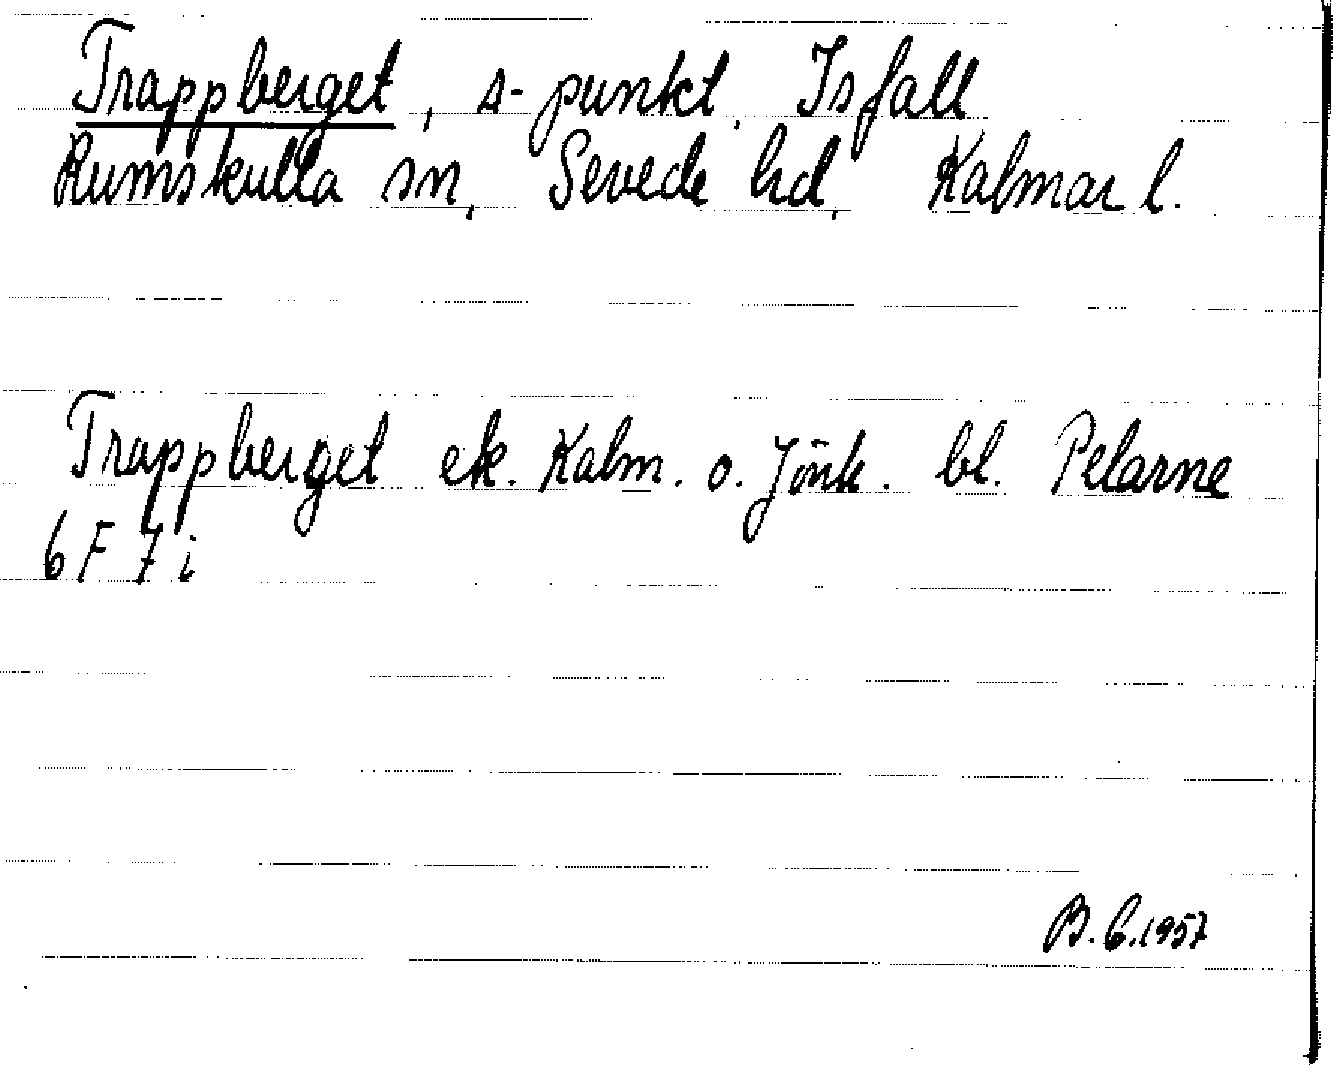 Trappberget, s-punkt, Isfall
Rumskulla sn, Sevede hd, Kalmar l.
Trappberget ek. Kalm. o. Jönk. bl. Pelarne
6 F 7 i
B. C. 1957